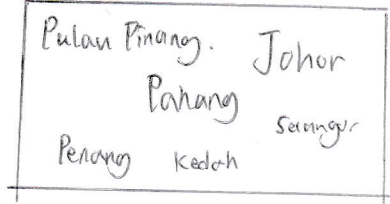 Pulau Pinang.
Johor
Pahang
Penang
Kedah